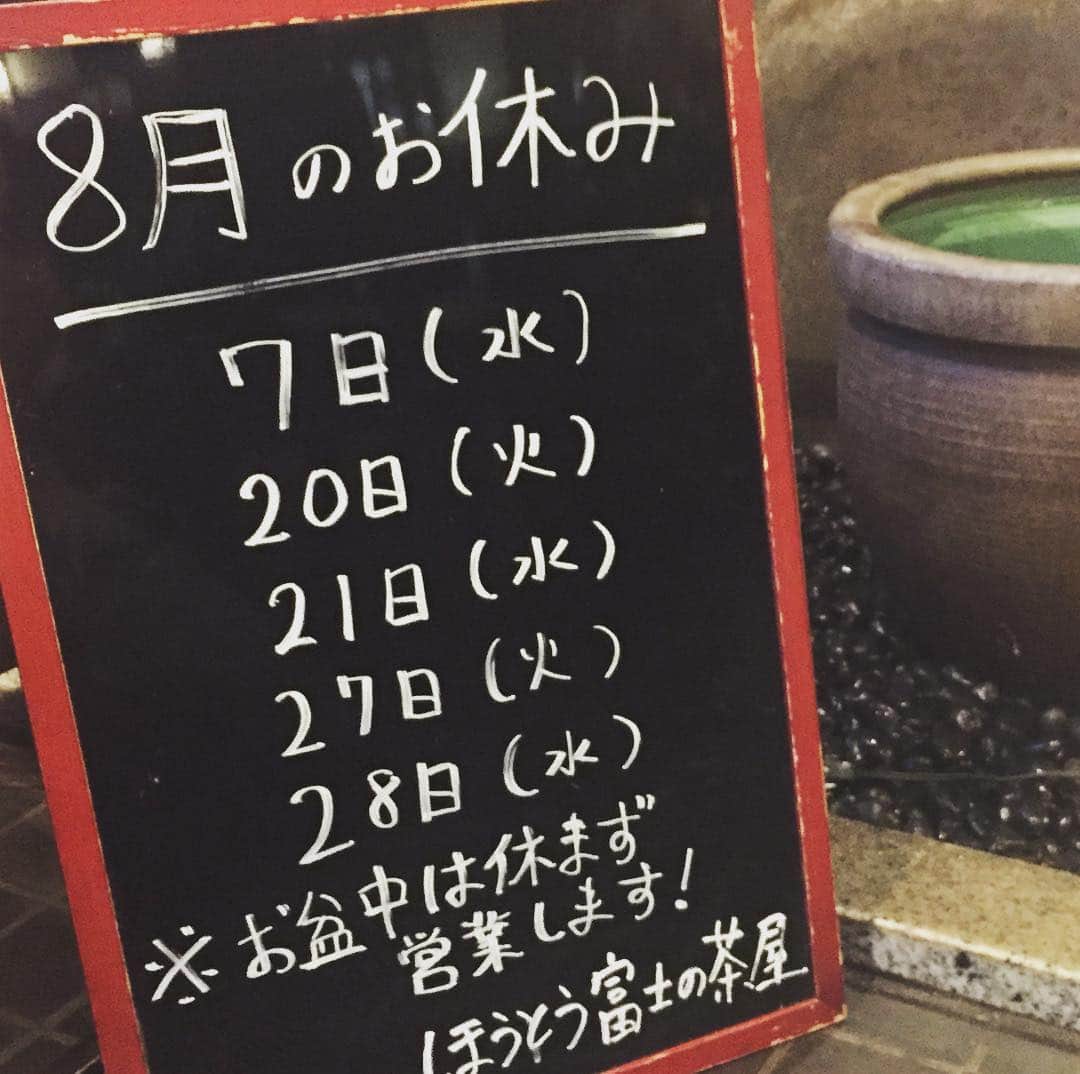 8月のお休み
7日(水)
20日(火)
21日(水)
27日(火)
28日(水)
※お盆中は休まず
営業します!
ほうとう富士の茶屋